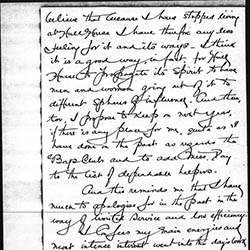 believe that because I have stopped living
at Hull House I have therefore any less
feeling for it and its ways - I think
it is a good way in fact for Hull
House to propagate its spirit to have
men and women going out of it to
different spheres of influence. And then
too, I propose to keep on next year,
if there is any place for me, just as I
have done in the past as regards the
Boys Club and to add Miss. Day
to the list of dependable helpers.
And this reminds me that I have
much to apologise for in the past in the
way of limited service and low efficiency.
I confess my main energies and
most intense interest went into the day's work